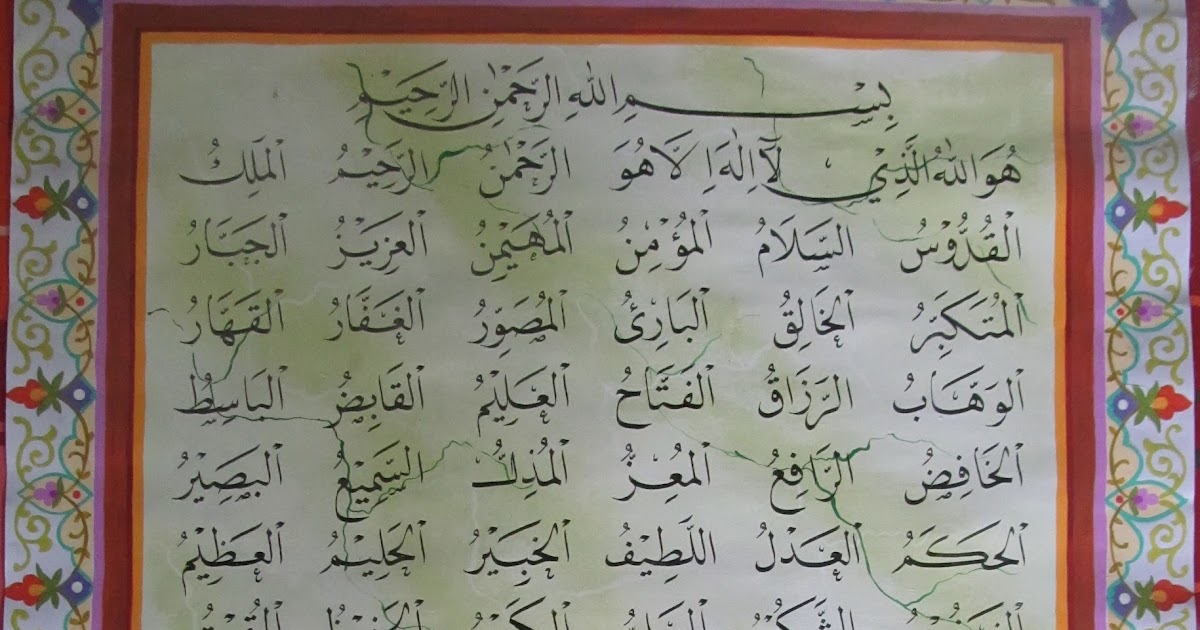 بِسْمِ اللهِ الرَّحْمٰنِ الرَّحِيْمِ
هُوَ اللهُ الَّذِيْ لَآ اِلٰهَ اِلَّا هُوَ الرَّحْمٰنُ الرَّحِيْمُ الْمَلِكُ
الْقُدُّوْسُ السَّلَامُ الْمُؤْمِنُ الْمُهَيْمِنُ الْعَزِيْزُ الْجَبَّارُ
الْمُتَكَبِّرُ الْخَالِقُ الْبَارِئُ الْمُصَوِّرُ الْغَفَّارُ الْقَهَّارُ
الْوَهَّابُ الرَّزَاقُ الْفَتَّاحُ الْعَلِيْمُ الْقَابِضُ الْبَاسِطُ
الْخَافِضُ الرَّافِعُ الْمُعِزُّ الْمُذِلُّ السَّمِيْعُ الْبَصِيْرُ
الْحَكَمُ الْعَدْلُ اللَّطِيْفُ الْخَبِيْرُ الْحَلِيْمُ الْعَظِيْمُ